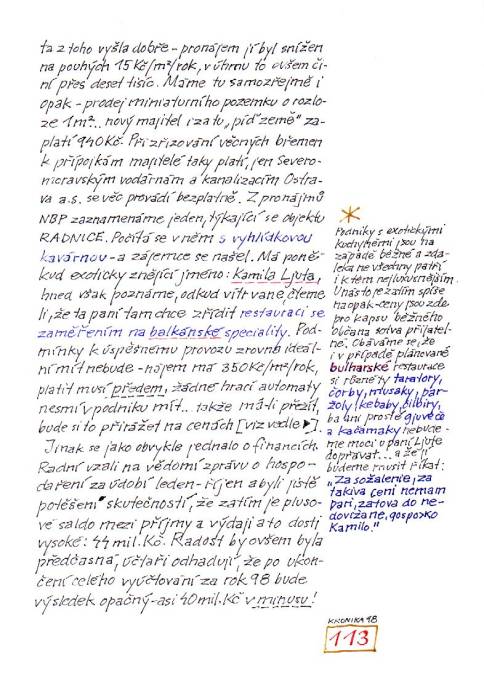 ta z toho vyšla dobře - pronájem jí byl snížen
na pouhých 15 Kč/m²/rok, v úhrnu to ovšem či-
ní přes deset tisíc. Máme tu samozřejmě i
opak - prodej miniaturního pozemku o rozlo-
ze 1m²... nový majitel i za tu „píď země" za-
platí 940 Kč. Při zřizování věcných břemen
k přípojkám majitelé taky platí, jen Severo-
moravským vodárnám a kanalizacím Ostra-
va a.s. se věc provádí bezplatně. Z pronájmů
NBP zaznamenáme jeden, týkající se objektu
RADNICE. Počítá se v něm s vyhlídkovou
kavárnou - a zájemce se našel. Má poně-
kud exoticky znějící jméno: Kamila Ljuta,
hned však poznáme, odkud vítr vane, čteme
li, že ta paní tam chce zřídit restauraci se
zaměřením na balkánské speciality. Pod-
mínky k úspěšnému provozu zrovna ideál-
ní mít nebude - nájem má 350 Kč/m²/rok,
platit musí předem, žádné hrací automaty
nesmí v podniku mít... takže má-li přežít,
bude si to přirážet na cenách [viz vedle ►].
Jinak se jako obvykle jednalo o financích.
Radní vzali na vědomí zprávu o hospo-
daření za údobí leden-říjen a byli jistě
potěšeni skutečností, že zatím je pluso-
vé saldo mezi příjmy a výdaji a to dosti
vysoké: 44 mil. Kč. Radost by ovšem byla
předčasná, účtaři odhadují, že po ukon-
čení celého vyúčtování za rok 98 bude
výsledek opačný - asi 40 mil. Kč v minusu!
Podniky s exotickými
kuchyněmi jsou na
západě běžné a zda-
leka ne všechny patří
i k těm nejluxusnějším.
U nás to je zatím spíše
naopak - ceny jsou zde
pro kapsu běžného
občana sotva přijatel-
né. Obáváme se, že
i v případě plánované
bulharské restaurace
si různé ty taratory,
čorby, musaky, pár-
žoly, kebaby, šilbiry,
ba ani prosté gjuveče
a kačamaky nebude-
me moci u paní Ljute
dopřávat... a že jí
budeme muset říkat:
„Za sožalenie, za
takiva ceni nemam
pari, zatova do ne-
dovižane, gospožo
Kamilo."
KRONIKA 98
113